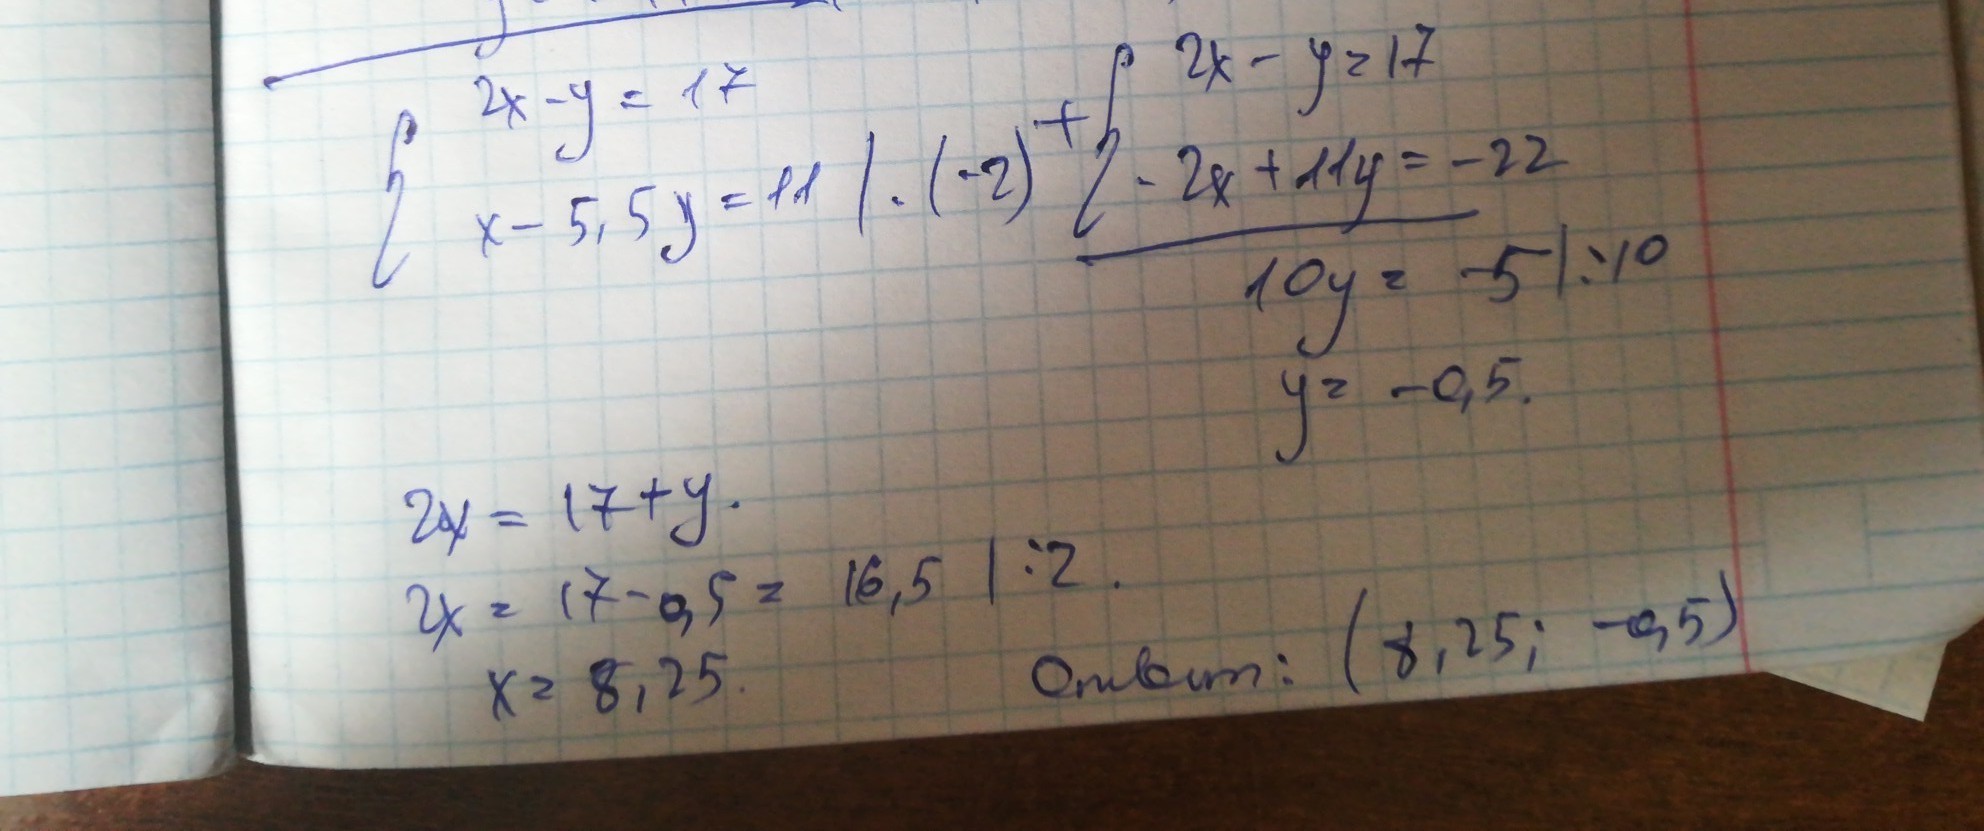 2x - y = 17
x - 5,5y = 11 | · (-2)
+ 2x - y = 17
- 2x + 11y = -22
10y = -5 | : 10
y = -0,5.
2x = 17 + y.
2x = 17 - 0,5 = 16,5 | : 2.
x = 8,25.
Ответ: (8,25; -0,5)